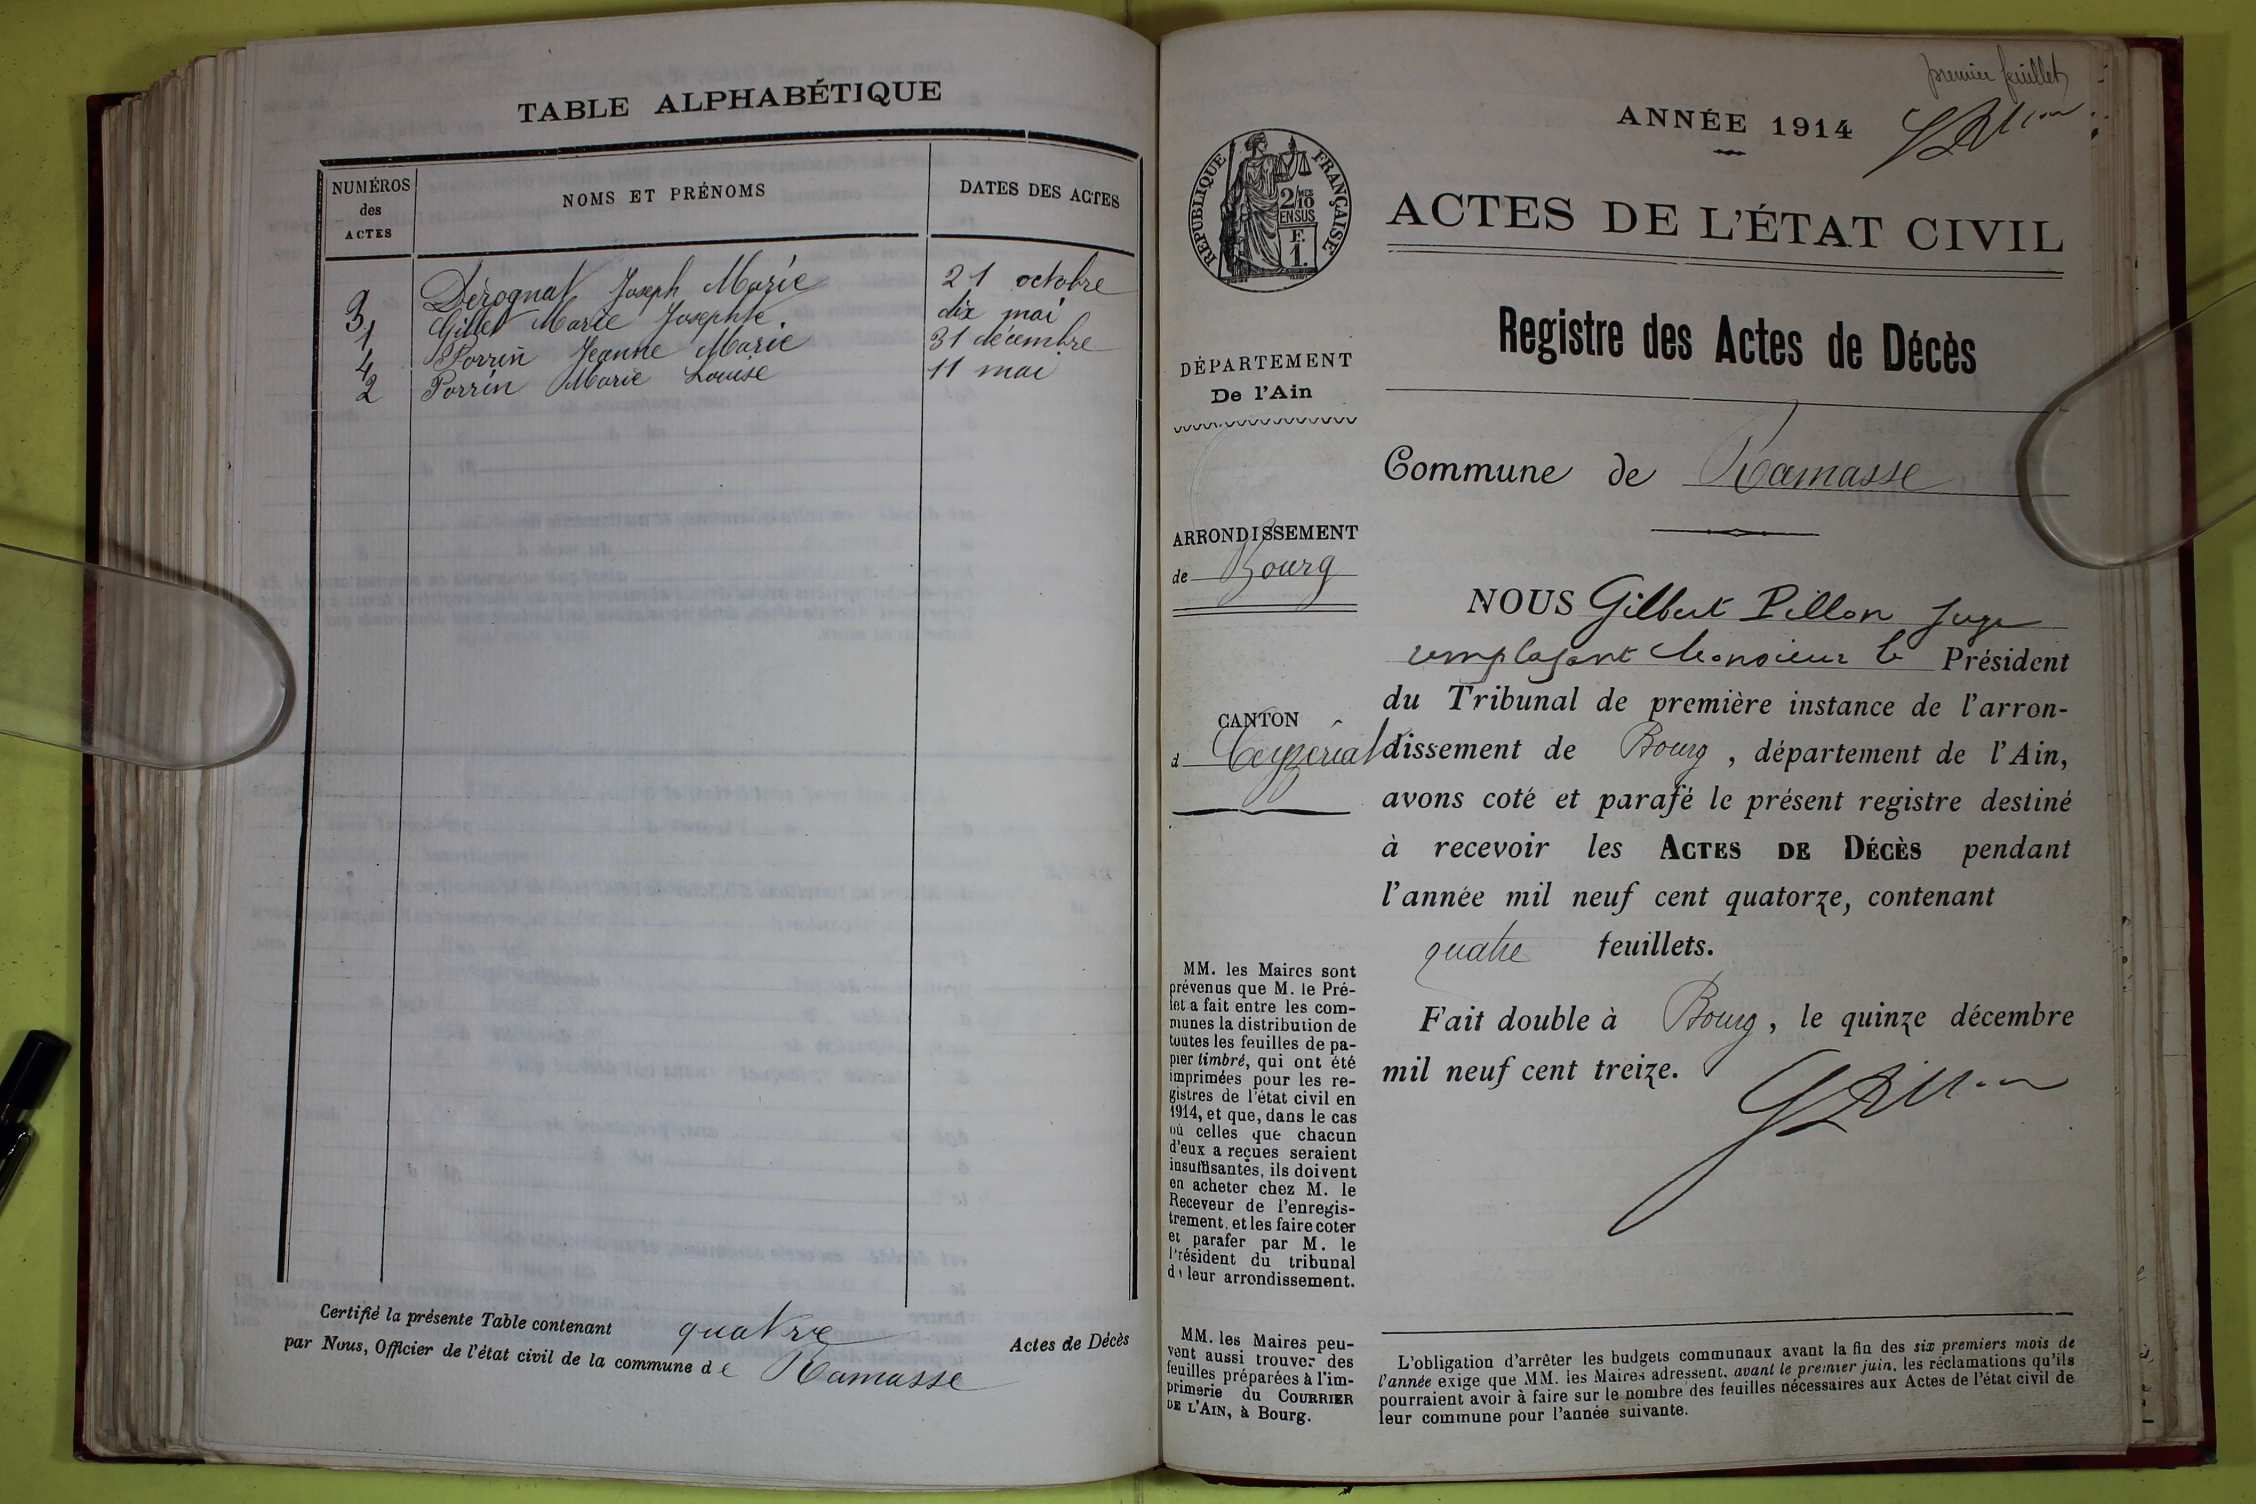 TABLE ALPHABÉTIQUE
NUMÉROS
des
ACTES
NOMS ET PRÉNOMS
DATES DES ACTES
3 Dérognat Joseph Marie 21 octobre
1 Gillet Marie Josephte dix mai
4 Porrin Jeanne Marie 31 décembre
2 Porrin Marie Louise 11 mai
Certifié la présente Table contenant quatre Actes de Décès
par Nous, Officier de l'état civil de la commune de Ramasse
premier feuillet
ANNÉE 1914
RÉPUBLIQUE FRANÇAISE
2/10 MES
EN SUS
F.
1.
ACTES DE L'ÉTAT CIVIL
Registre des Actes de Décès
DÉPARTEMENT
De l'Ain
Commune de Ramasse
ARRONDISSEMENT
de Bourg
CANTON
d Ceyzériat
NOUS Gilbert Pillon Juge
remplaçant Monsieur le Président
du Tribunal de première instance de l'arron-
dissement de Bourg, département de l'Ain,
avons coté et parafé le présent registre destiné
à recevoir les ACTES DE DÉCÈS pendant
l'année mil neuf cent quatorze, contenant
quatre feuillets.
Fait double à Bourg, le quinze décembre
mil neuf cent treize.
MM. les Maires sont
prévenus que M. le Pré-
fet a fait entre les com-
munes la distribution de
toutes les feuilles de pa-
pier timbré, qui ont été
imprimées pour les re-
gistres de l'état civil en
1914, et que, dans le cas
où celles que chacun
d'eux a reçues seraient
insuffisantes, ils doivent
en acheter chez M. le
Receveur de l'enregis-
trement, et les faire coter
et parafer par M. le
Président du tribunal
de leur arrondissement.
MM. les Maires peu-
vent aussi trouver des
feuilles préparées à l'im-
primerie du COURRIER
DE L'AIN, à Bourg.
L'obligation d'arrêter les budgets communaux avant la fin des six premiers mois de
l'année exige que MM. les Maires adressent, avant le premier juin, les réclamations qu'ils
pourraient avoir à faire sur le nombre des feuilles nécessaires aux Actes de l'état civil de
leur commune pour l'année suivante.